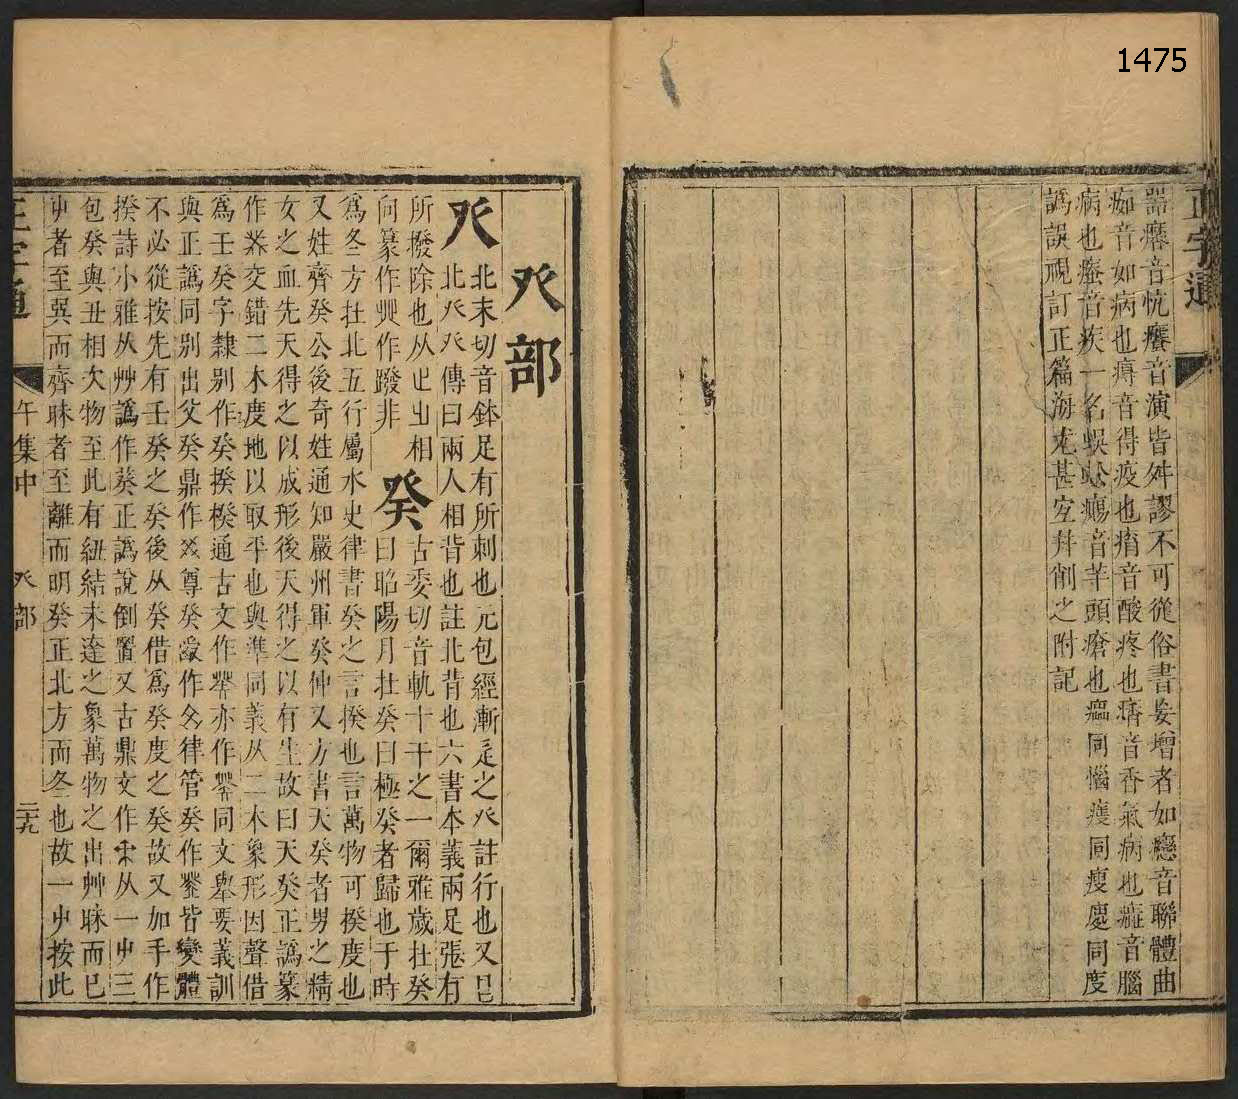 1475
正字通
器癢音忼癢音演皆舛謬不可從俗書妄增者如癦音聯體曲
痴音如病也㾮音得疫也㾕音酸疼也㿄音香氣病也㿒音腦
病也㾮音疾一名蜈蚣瘍音芋頭瘡也㿈同惱㾟同瘦㢙同度
譌誤視訂正篇海尤甚宐幷削之附記
癶部
癶 北末切音鉢足有所刺也元包經漸辵之癶註行也又㠯
所撥除也从止𣥂相 北癶癶傳曰兩人相背也註北背也六書本義兩足張有
向篆作𣥠作蹳非 癸 古委切音軌十干之一爾雅歲在癸
曰昭陽月在癸曰極癸者歸也于時
爲冬方在北五行屬水史律書癸之言揆也言萬物可揆度也
又姓齊癸公後奇姓通知嚴州軍癸仲又方書天癸者男之精
女之血先天得之以成形後天得之以有生故曰天癸正譌篆
作𤼩交錯二木度地以取平也與準同義从二木象形因聲借
爲壬癸字隸別作癸揆楑通古文作𤼪亦作𤼪同文舉要義訓
與正譌同別出父癸鼎作㸚尊癸𣪘作父律管癸作𤼪皆變體
不必從按先有壬癸之癸後从癸借爲癸度之癸故又加手作
揆詩小雅从艸譌作葵正譌說倒置又古鼎文作朱从一屮三
包癸與丑相次物至此有紐結未達之象萬物之出艸昧而巳
屮者至巽而齊昧者至離而明癸正北方而冬也故一屮按此
正字通
午集中
癶部
二十九